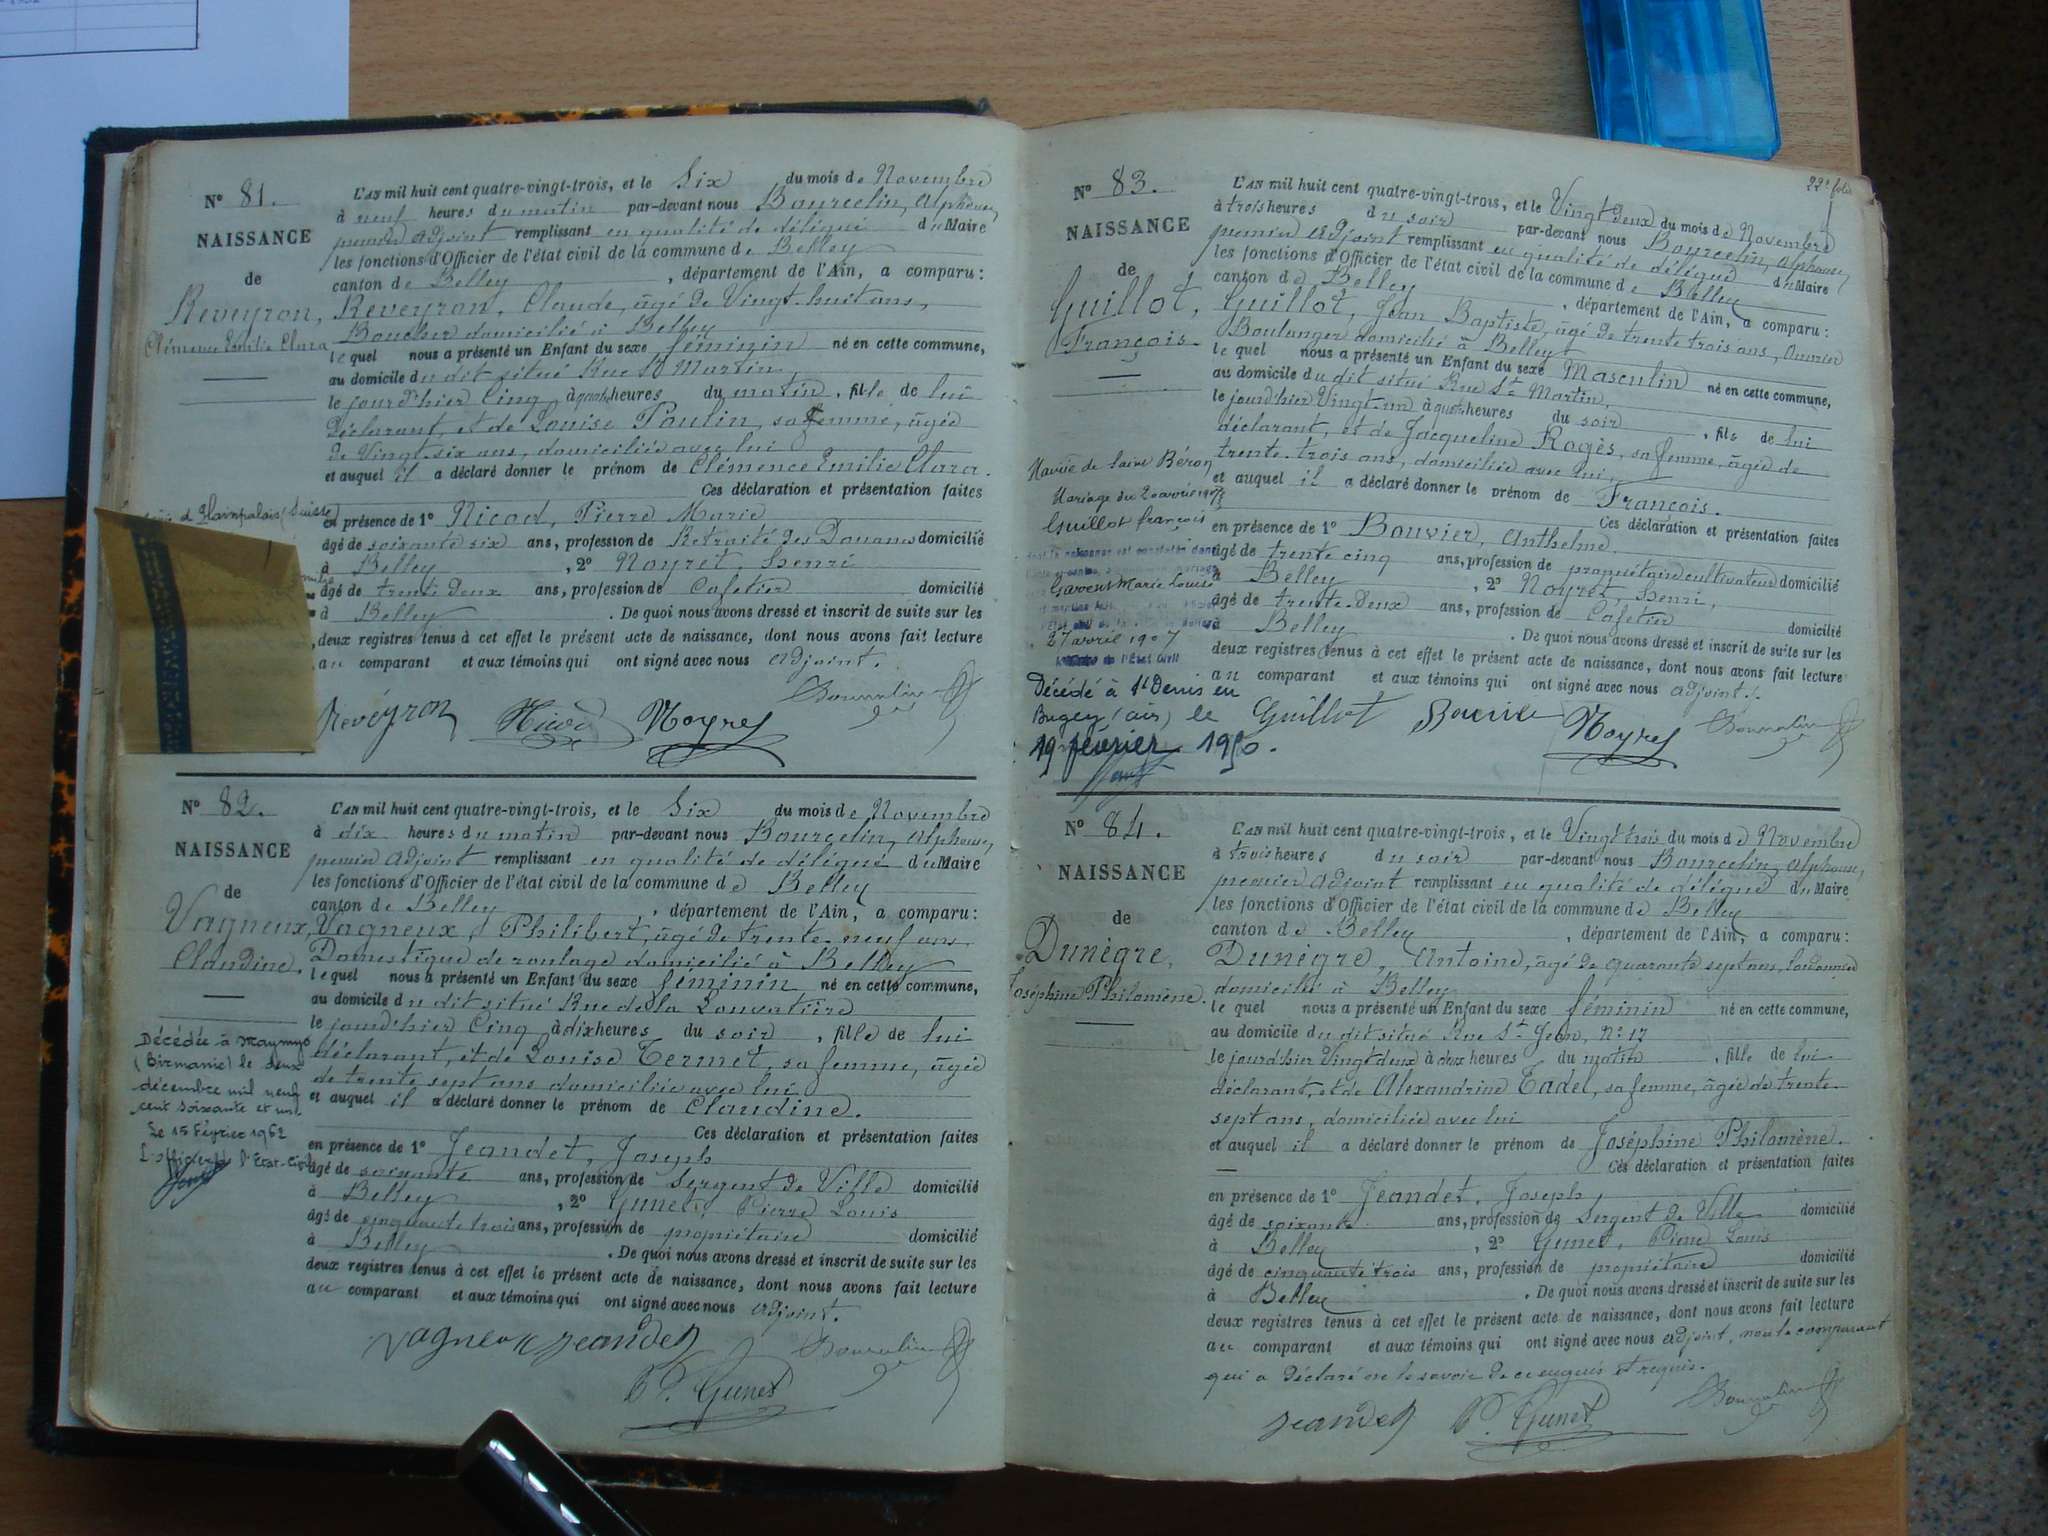 N° 81.
NAISSANCE
de
Reveyron,
Clémence Emilie Clara
L'AN mil huit cent quatre-vingt-trois, et le Six du mois de Novembre
à neuf heures du matin par-devant nous Bourcelin, Alphonse,
premier adjoint remplissant en qualité de délégué du Maire
les fonctions d'Officier de l'état civil de la commune de Belley
canton de Belley, département de l'Ain, a comparu:
Reveyron, Claude, âgé de Vingt-huit ans,
Boucher domicilié à Belley
lequel nous a présenté un Enfant du sexe féminin né en cette commune,
au domicile du dit situé Rue St Martin,
le jour d'hier Cinq, à quatre heures du matin, fille de lui
déclarant, et de Louise Poulin, sa femme, âgée
de Vingt-six ans, domiciliée avec lui
et auquel il a déclaré donner le prénom de Clémence Emilie Clara.
Ces déclaration et présentation faites
en présence de 1° Nicod, Pierre Marie
âgé de soixante six ans, profession de Retraité des Douanes domicilié
à Belley, 2° Noyret, Henri
âgé de trente deux ans, profession de Cafetier domicilié
à Belley. De quoi nous avons dressé et inscrit de suite sur les
deux registres tenus à cet effet le présent acte de naissance, dont nous avons fait lecture
au comparant et aux témoins qui ont signé avec nous adjoint.
d Plainpalais (Suisse)
Reveyron Nicod Noyret
N° 82.
NAISSANCE
de
Vagneux,
Claudine.
L'AN mil huit cent quatre-vingt-trois, et le Six du mois de Novembre
à dix heures du matin par-devant nous Bourcelin, Alphonse,
premier adjoint remplissant en qualité de délégué du Maire
les fonctions d'Officier de l'état civil de la commune de Belley
canton de Belley, département de l'Ain, a comparu:
Vagneux, Philibert, âgé de trente-neuf ans,
Domestique de roulage domicilié à Belley
lequel nous a présenté un Enfant du sexe féminin né en cette commune,
au domicile du dit situé Rue de la Louvatière
le jour d'hier Cinq, à dix heures du soir, fille de lui
déclarant, et de Louise Termet, sa femme, âgée
de trente sept ans domiciliée avec lui
et auquel il a déclaré donner le prénom de Claudine.
Ces déclaration et présentation faites
en présence de 1° Jeandet, Joseph
âgé de soixante ans, profession de Sergent de Ville domicilié
à Belley, 2° Gunet, Pierre Louis
âgé de cinquante trois ans, profession de propriétaire domicilié
à Belley. De quoi nous avons dressé et inscrit de suite sur les
deux registres tenus à cet effet le présent acte de naissance, dont nous avons fait lecture
au comparant et aux témoins qui ont signé avec nous adjoint.
Décédée à Maymyo
(Birmanie) le deux
décembre mil neuf
cent soixante et un.
Le 15 Février 1962
L'officier de l'Etat-Civil
Vagneux Jeandet
P. Gunet
22e folio
N° 83.
NAISSANCE
de
Guillot,
François.
L'AN mil huit cent quatre-vingt-trois, et le Vingt deux du mois de Novembre
à trois heures du soir par-devant nous Bourcelin, Alphonse,
premier adjoint remplissant en qualité de délégué du Maire
les fonctions d'Officier de l'état civil de la commune de Belley
canton de Belley, département de l'Ain, a comparu:
Guillot, Jean Baptiste, âgé de trente trois ans, Ouvrier
Boulanger domicilié à Belley
lequel nous a présenté un Enfant du sexe Masculin né en cette commune,
au domicile du dit situé Rue St Martin,
le jour d'hier Vingt-un à quatre heures du soir, fils de lui
déclarant, et de Jacqueline Rogès, sa femme, âgée de
trente-trois ans, domiciliée avec lui,
et auquel il a déclaré donner le prénom de François.
Ces déclaration et présentation faites
en présence de 1° Bouvier, Anthelme,
âgé de trente cinq ans, profession de propriétaire cultivateur domicilié
à Belley, 2° Noyret, Henri,
âgé de trente-deux ans, profession de Cafetier domicilié
à Belley. De quoi nous avons dressé et inscrit de suite sur les
deux registres tenus à cet effet le présent acte de naissance, dont nous avons fait lecture
au comparant et aux témoins qui ont signé avec nous adjoint.
Mairie de Saint Béron
Mariage du 20 avril 1907
Guillot françois
dont la naissance est constatée dans
Garent Marie Louise
27 avril 1907
de l'État Civil
Décédé à St Denis en
Bugey (ain) le
19 février 1950.
Guillot Bouvier Noyret
N° 84.
NAISSANCE
de
Dunègre,
Joséphine Philomène.
L'AN mil huit cent quatre-vingt-trois, et le Vingt trois du mois de Novembre
à trois heures du soir par-devant nous Bourcelin, Alphonse,
premier adjoint remplissant en qualité de délégué du Maire
les fonctions d'Officier de l'état civil de la commune de Belley
canton de Belley, département de l'Ain, a comparu:
Dunègre, Antoine, âgé de quarante sept ans, Cordonnier
domicilié à Belley
lequel nous a présenté un Enfant du sexe féminin né en cette commune,
au domicile du dit situé Rue St Jean, N° 17
le jour d'hier Vingt deux à deux heures du matin, fille de lui
déclarant, et de Alexandrine Tadel, sa femme, âgée de trente-
sept ans, domiciliée avec lui
et auquel il a déclaré donner le prénom de Joséphine Philomène.
Ces déclaration et présentation faites
en présence de 1° Jeandet, Joseph
âgé de soixante ans, profession de Sergent de Ville domicilié
à Belley, 2° Gunet, Pierre Louis
âgé de cinquante trois ans, profession de propriétaire domicilié
à Belley. De quoi nous avons dressé et inscrit de suite sur les
deux registres tenus à cet effet le présent acte de naissance, dont nous avons fait lecture
au comparant et aux témoins qui ont signé avec nous adjoint, non le comparant
qui a déclaré ne le savoir de ce enquis et requis.
Jeandet P. Gunet